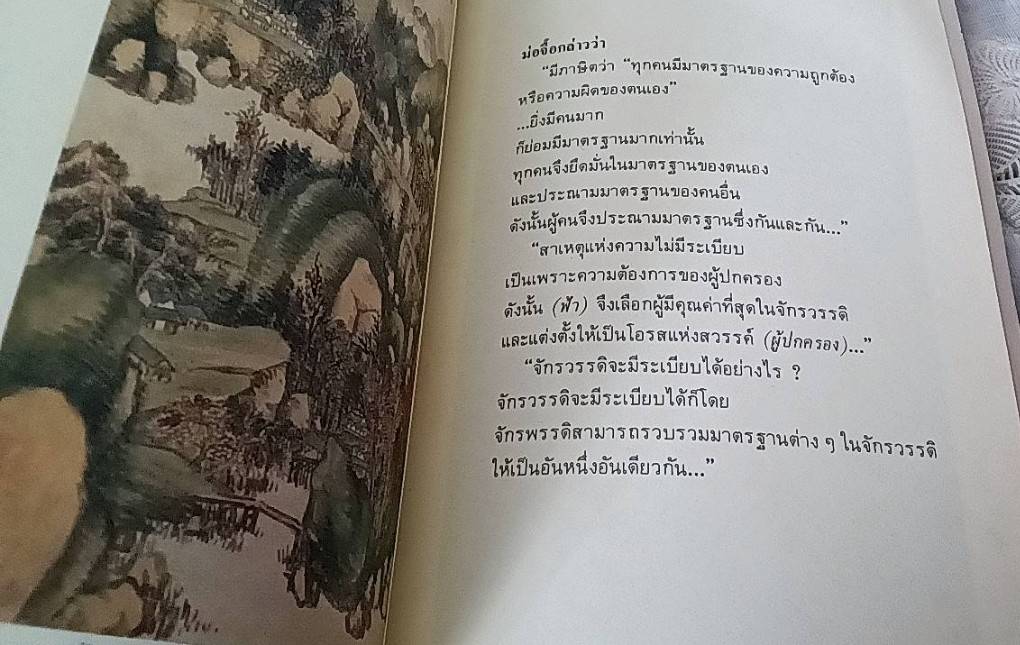 ม่อจื๊อกล่าวว่า
“มีภาษิตว่า “ทุกคนมีมาตรฐานของความถูกต้อง
หรือความผิดของตนเอง”
...ยิ่งมีคนมาก
ก็ย่อมมีมาตรฐานมากเท่านั้น
ทุกคนจึงยึดมั่นในมาตรฐานของตนเอง
และประณามมาตรฐานของคนอื่น
ดังนั้นผู้คนจึงประณามมาตรฐานซึ่งกันและกัน...”
“สาเหตุแห่งความไม่มีระเบียบ
เป็นเพราะความต้องการของผู้ปกครอง
ดังนั้น (ฟ้า) จึงเลือกผู้มีคุณค่าที่สุดในจักรวรรดิ
และแต่งตั้งให้เป็นโอรสแห่งสวรรค์ (ผู้ปกครอง)...”
“จักรวรรดิจะมีระเบียบได้อย่างไร ?
จักรวรรดิจะมีระเบียบได้ก็โดย
จักรพรรดิสามารถรวบรวมมาตรฐานต่าง ๆ ในจักรวรรดิ
ให้เป็นอันหนึ่งอันเดียวกัน...”